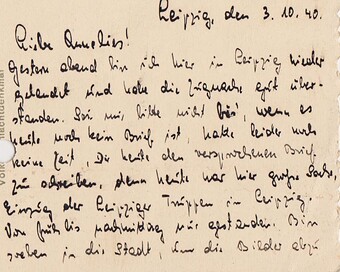 Leipzig, den 3.10.40.
Liebe Annelies!
Gestern abend bin ich hier in Leipzig wieder
gelandet und habe die Zugnacht gut über-
standen. Sei mir bitte nicht bös', wenn es
heute noch kein Brief ist, hatte leider noch
keine Zeit, Dir heute den versprochenen Brief
zu schreiben, denn heute war hier große Sache,
Einzug der Leipziger Truppen in Leipzig.
Von früh bis nachmittag nur gestanden. Bin
soeben in die Stadt, um die Bilder abzu